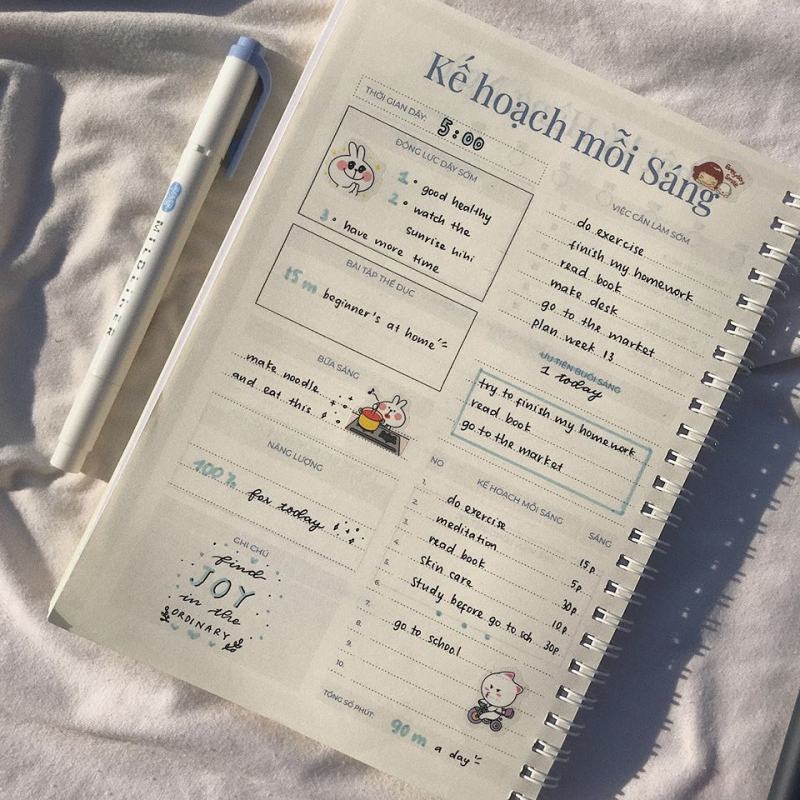 Kế hoạch mỗi Sáng
THỜI GIAN DẬY:
5:00
ĐỘNG LỰC DẬY SỚM
1. good healthy
2. watch the
sunrise hihi
3. have more time
BÀI TẬP THỂ DỤC
15 m beginner's at home
BỮA SÁNG
make noodle
and eat this
NĂNG LƯỢNG
100%
for today
GHI CHÚ
find
JOY
in the
ORDINARY
VIỆC CẦN LÀM SỚM
do exercise
finish my homework
read book
make desk
go to the market
plan week 13
ƯU TIÊN BUỔI SÁNG
1 today
try to finish my homework
read book
go to the market
NO KẾ HOẠCH MỖI SÁNG SÁNG
1. do exercise 15p
2. meditation 5p
3. read book 30p
4. skin care 10p
5. study before go to sch 30p
6.
7. go to school
8.
9.
10.
TỔNG SỐ PHÚT:
90 m a day
MILDLINER